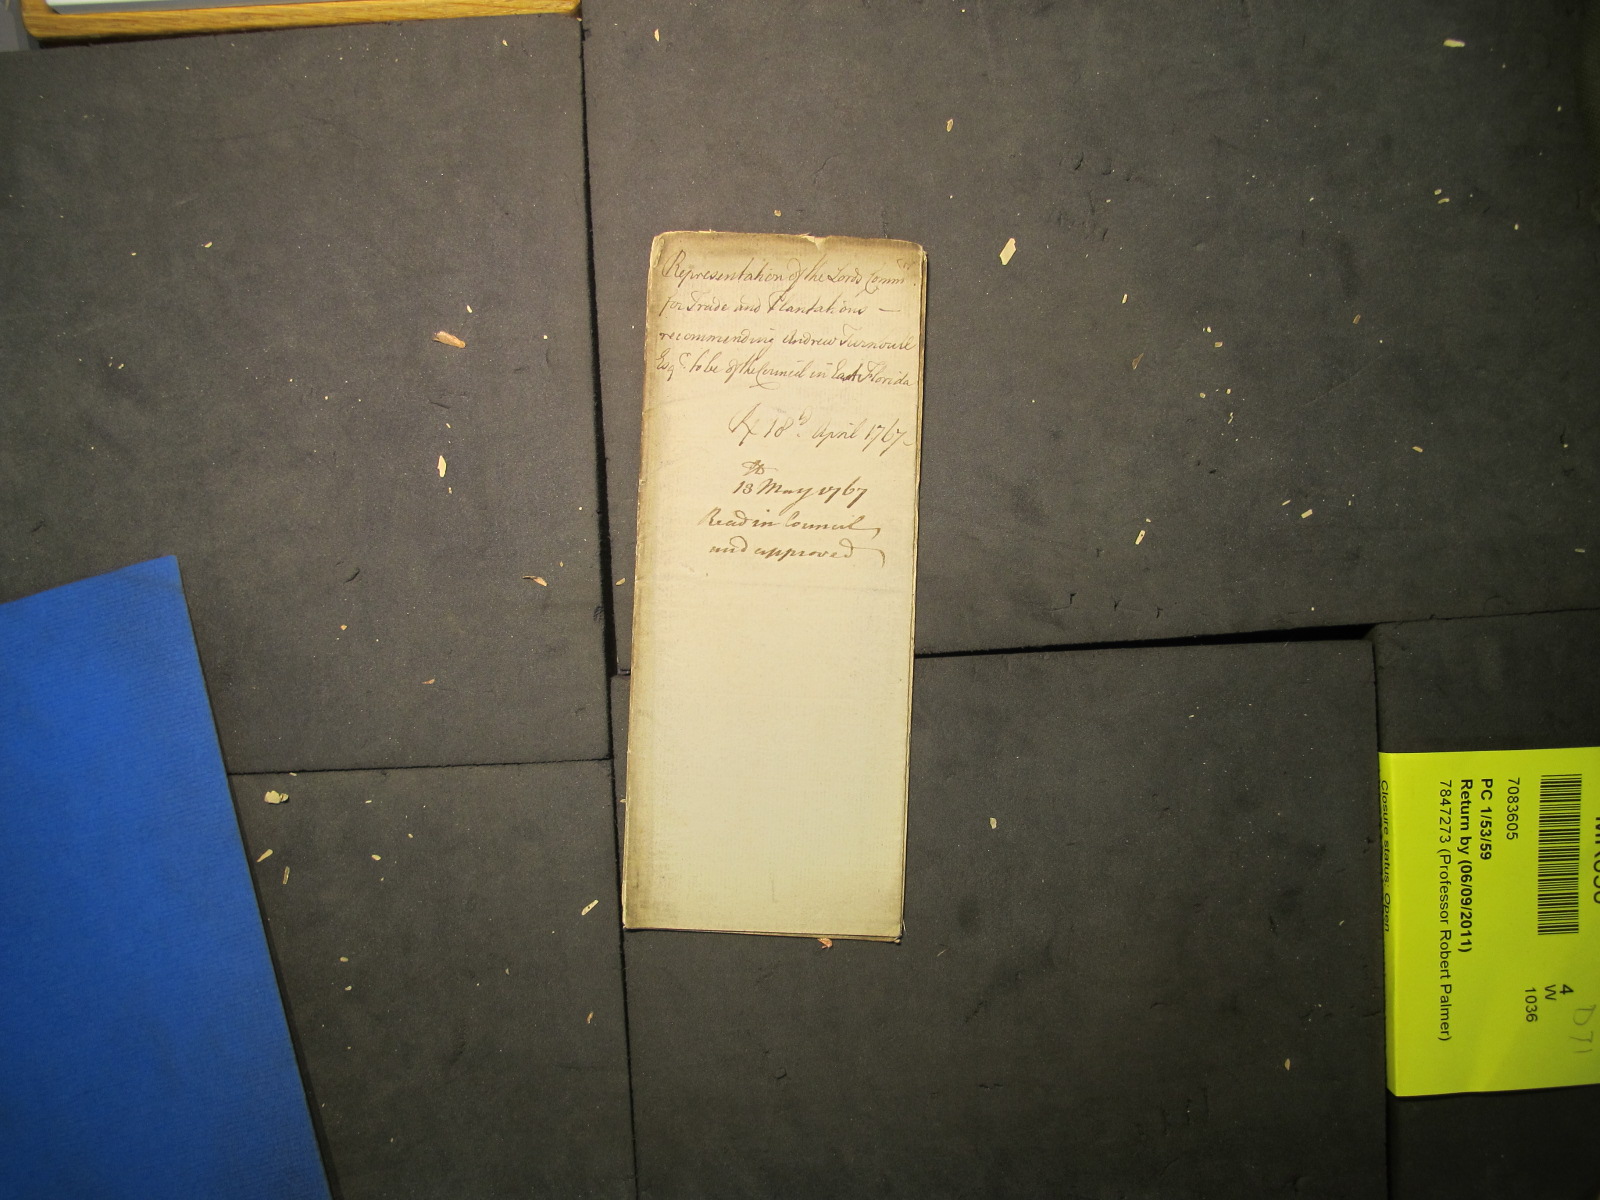 Representation of the Lords Comm.rs
for Trade and Plantations —
recommending Andrew Turnbull
Esq.r to be of the Council in East Florida
Rx 18.th April 1767.
13 May 1767
Read in Council
and approved
7083605
PC 1/53/59
Return by (06/09/2011)
7847273 (Professor Robert Palmer)
Closure status: Open
4
W
1036
D71